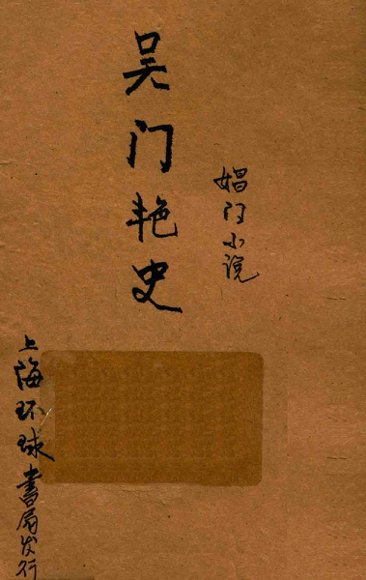 娼门小说
吴门艳史
上海环球書局发行